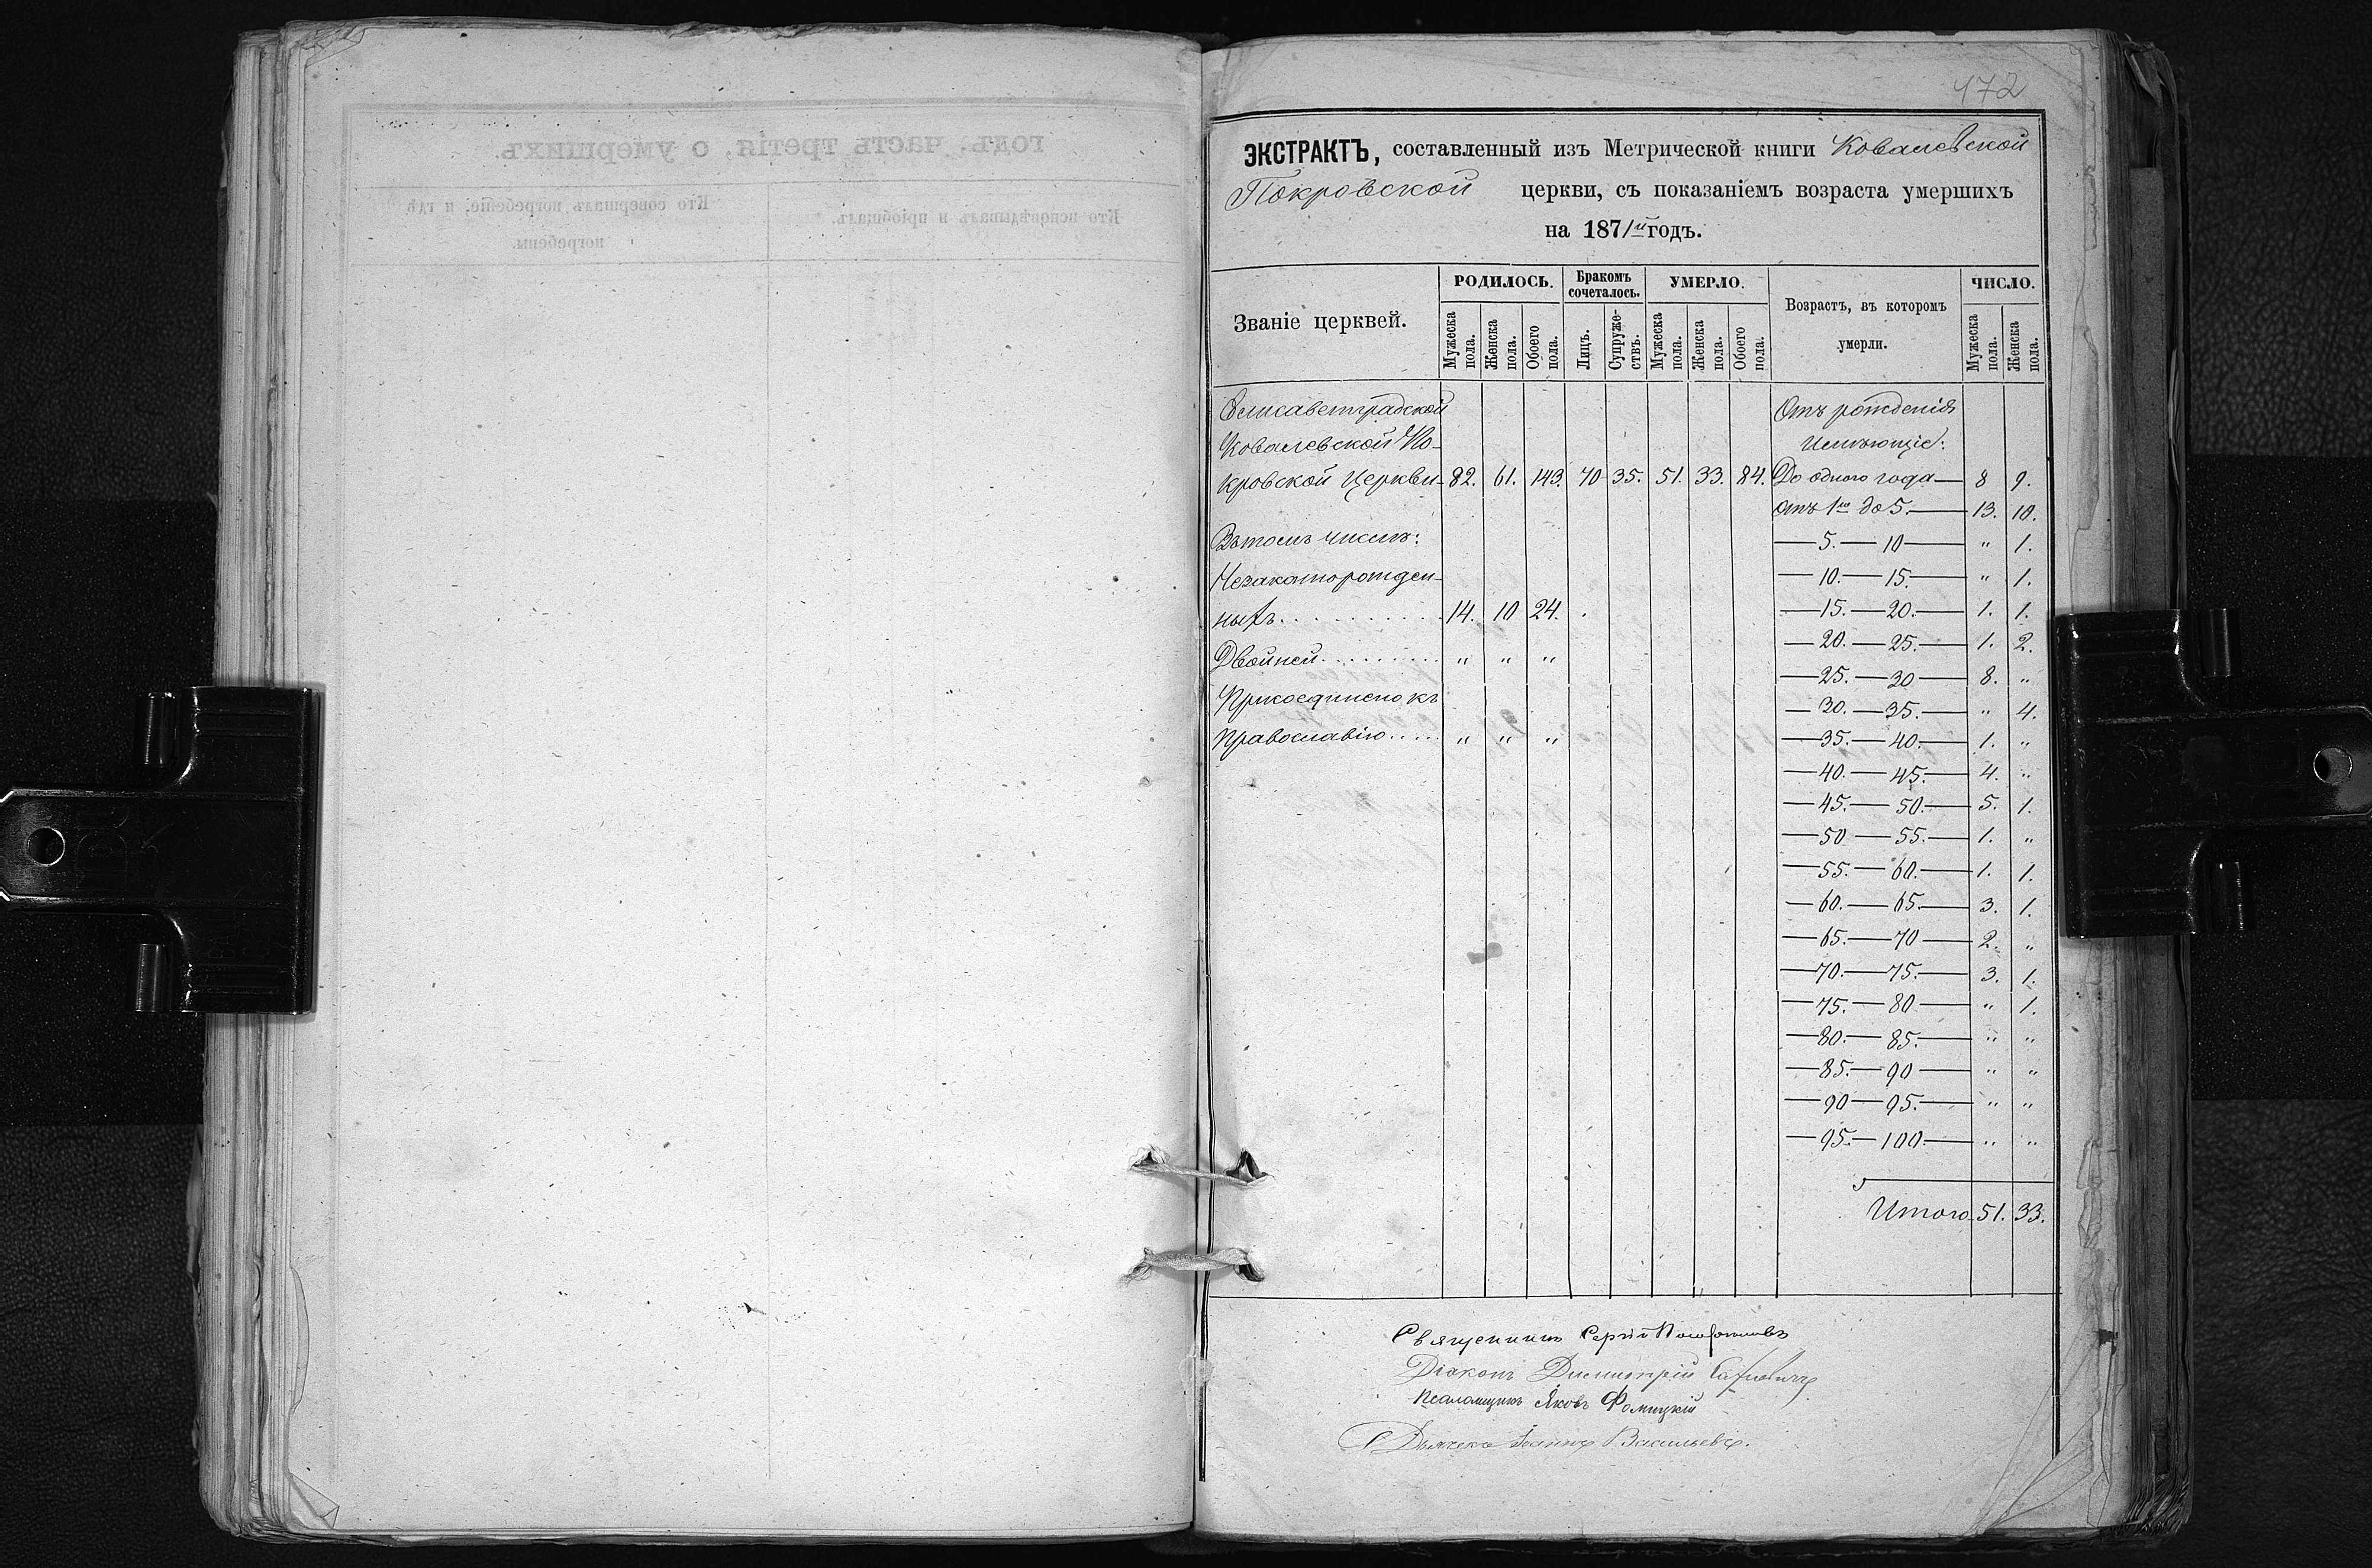 472
ЭКСТРАКТЪ, составленный изъ Метрической книги Ковалевской
Покровской церкви, съ показаніемъ возраста умершихъ
на 1871й годъ.
Званіе церквей. РОДИЛОСЬ. Бракомъ сочеталось. УМЕРЛО. Возрастъ, въ которомъ умерли. ЧИСЛО.
Мужеска пола. Женска пола. Обоего пола. Лицъ. Супружествъ. Мужеска пола. Женска пола. Обоего пола. Мужеска пола. Женска пола.
Елисаветградской Отъ рожденія
Ковалевской По- Имѣющіе:
кровской Церкви 82. 61. 143. 70 35. 51. 33. 84. До одного года — 8 9.
Отъ 1го до 5. — 13. 10.
Въ томъ числѣ: — 5. — 10 — " 1.
Незаконорожден- — 10. — 15. — " 1.
ныхъ . . . . . . . . . . 14. 10 24. — 15. — 20. — 1. 1.
— 20. — 25. — 1. 2.
Двойней . . . . . . . . . " " " — 25. — 30 — 8. "
Присоединено къ — 30. — 35. — " 4.
Православію . . . . . " " " — 35. — 40. — 1. "
— 40. — 45. — 4. "
— 45. — 50. — 5. 1.
— 50 — 55. — 1. "
— 55. — 60. — 1. 1.
— 60. — 65. — 3. 1.
— 65. — 70 — 2. "
— 70. — 75. — 3. 1.
— 75. — 80 — " 1.
— 80. — 85. — " "
— 85. — 90 — " "
— 90 — 95. — " "
— 95. — 100. — " "
Итого 51. 33.
Священникъ Сергій
Діаконъ Димитрій
Псаломщикъ Яковъ Фомицкій
Іоаннъ Васильевъ.
годъ. часть третія, о умершихъ.
Кто исповѣдывалъ и пріобщалъ. Кто совершалъ погребеніе, и гдѣ
погребены.